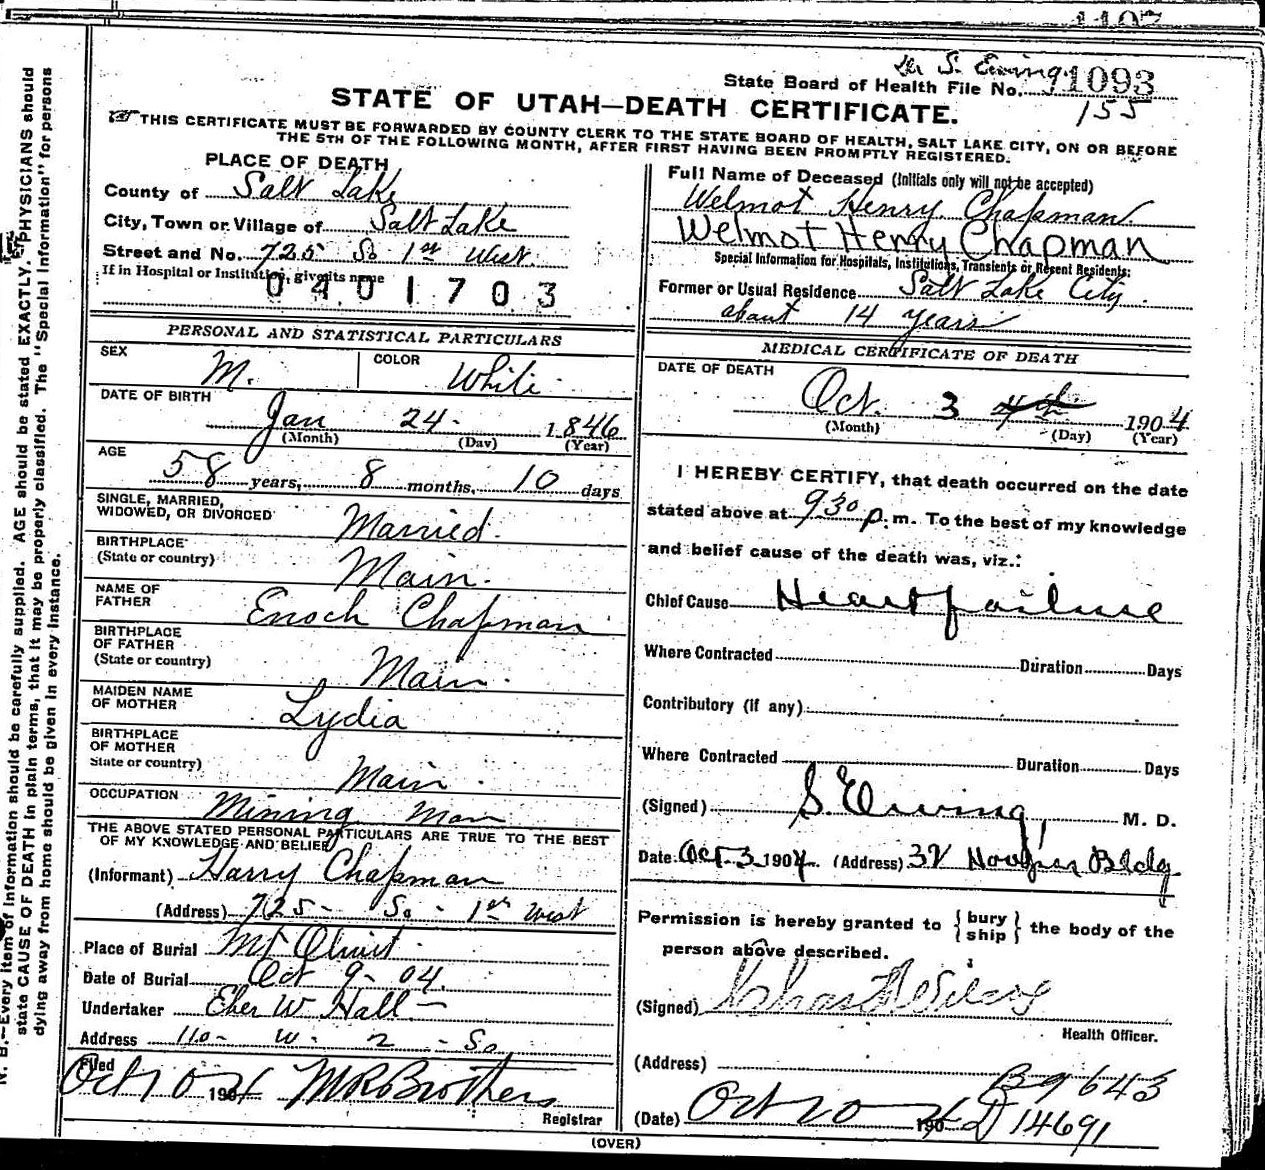 1107
Dr S. Ewing
State Board of Health File No. 1093
155
STATE OF UTAH—DEATH CERTIFICATE.
THIS CERTIFICATE MUST BE FORWARDED BY COUNTY CLERK TO THE STATE BOARD OF HEALTH, SALT LAKE CITY, ON OR BEFORE
THE 5TH OF THE FOLLOWING MONTH, AFTER FIRST HAVING BEEN PROMPTLY REGISTERED.
PLACE OF DEATH
County of Salt Lake
City, Town or Village of Salt Lake
Street and No. 725 So 1st West.
If in Hospital or Institution, give its name
0401703
Full Name of Deceased (Initials only will not be accepted)
Welmot Henry Chapman
Welmot Henry Chapman
Special Information for Hospitals, Institutions, Transients or Recent Residents:
Former or Usual Residence Salt Lake City
about 14 years
PERSONAL AND STATISTICAL PARTICULARS
SEX M. COLOR White
DATE OF BIRTH
Jan 24 1846
(Month) (Day) (Year)
AGE
58 years, 8 months, 10 days
SINGLE, MARRIED,
WIDOWED, OR DIVORCED Married.
BIRTHPLACE
(State or country) Main.
NAME OF
FATHER Enoch Chapman
BIRTHPLACE
OF FATHER
(State or country) Main.
MAIDEN NAME
OF MOTHER Lydia
BIRTHPLACE
OF MOTHER
State or country) Main.
OCCUPATION Mining Man
THE ABOVE STATED PERSONAL PARTICULARS ARE TRUE TO THE BEST
OF MY KNOWLEDGE AND BELIEF
(Informant) Harry Chapman
(Address) 725 - So - 1st West
Place of Burial Mt Olivet.
Date of Burial Oct 9 - 04.
Undertaker Eber W Hall
Address 110 - W - 2 - So
Filed Oct 10 1904 M R Brothers
Registrar
MEDICAL CERTIFICATE OF DEATH
DATE OF DEATH
Oct. 3 4th 1904
(Month) (Day) (Year)
I HEREBY CERTIFY, that death occurred on the date
stated above at 930 p.m. To the best of my knowledge
and belief cause of the death was, viz.:
Chief Cause Heart failure
Where Contracted Duration Days
Contributory (if any)
Where Contracted Duration Days
(Signed) S. Ewing, M. D.
Date Oct. 3 1904 (Address) 32 Bldg.
Permission is hereby granted to { bury
ship } the body of the
person above described.
(Signed)
Health Officer.
(Address)
B9643
(Date) Oct 10 1904 D14691
(OVER)
N. B.—Every item of information should be carefully supplied. AGE should be stated EXACTLY. PHYSICIANS should
state CAUSE OF DEATH in plain terms, that it may be properly classified. The "Special Information" for persons
dying away from home should be given in every instance.